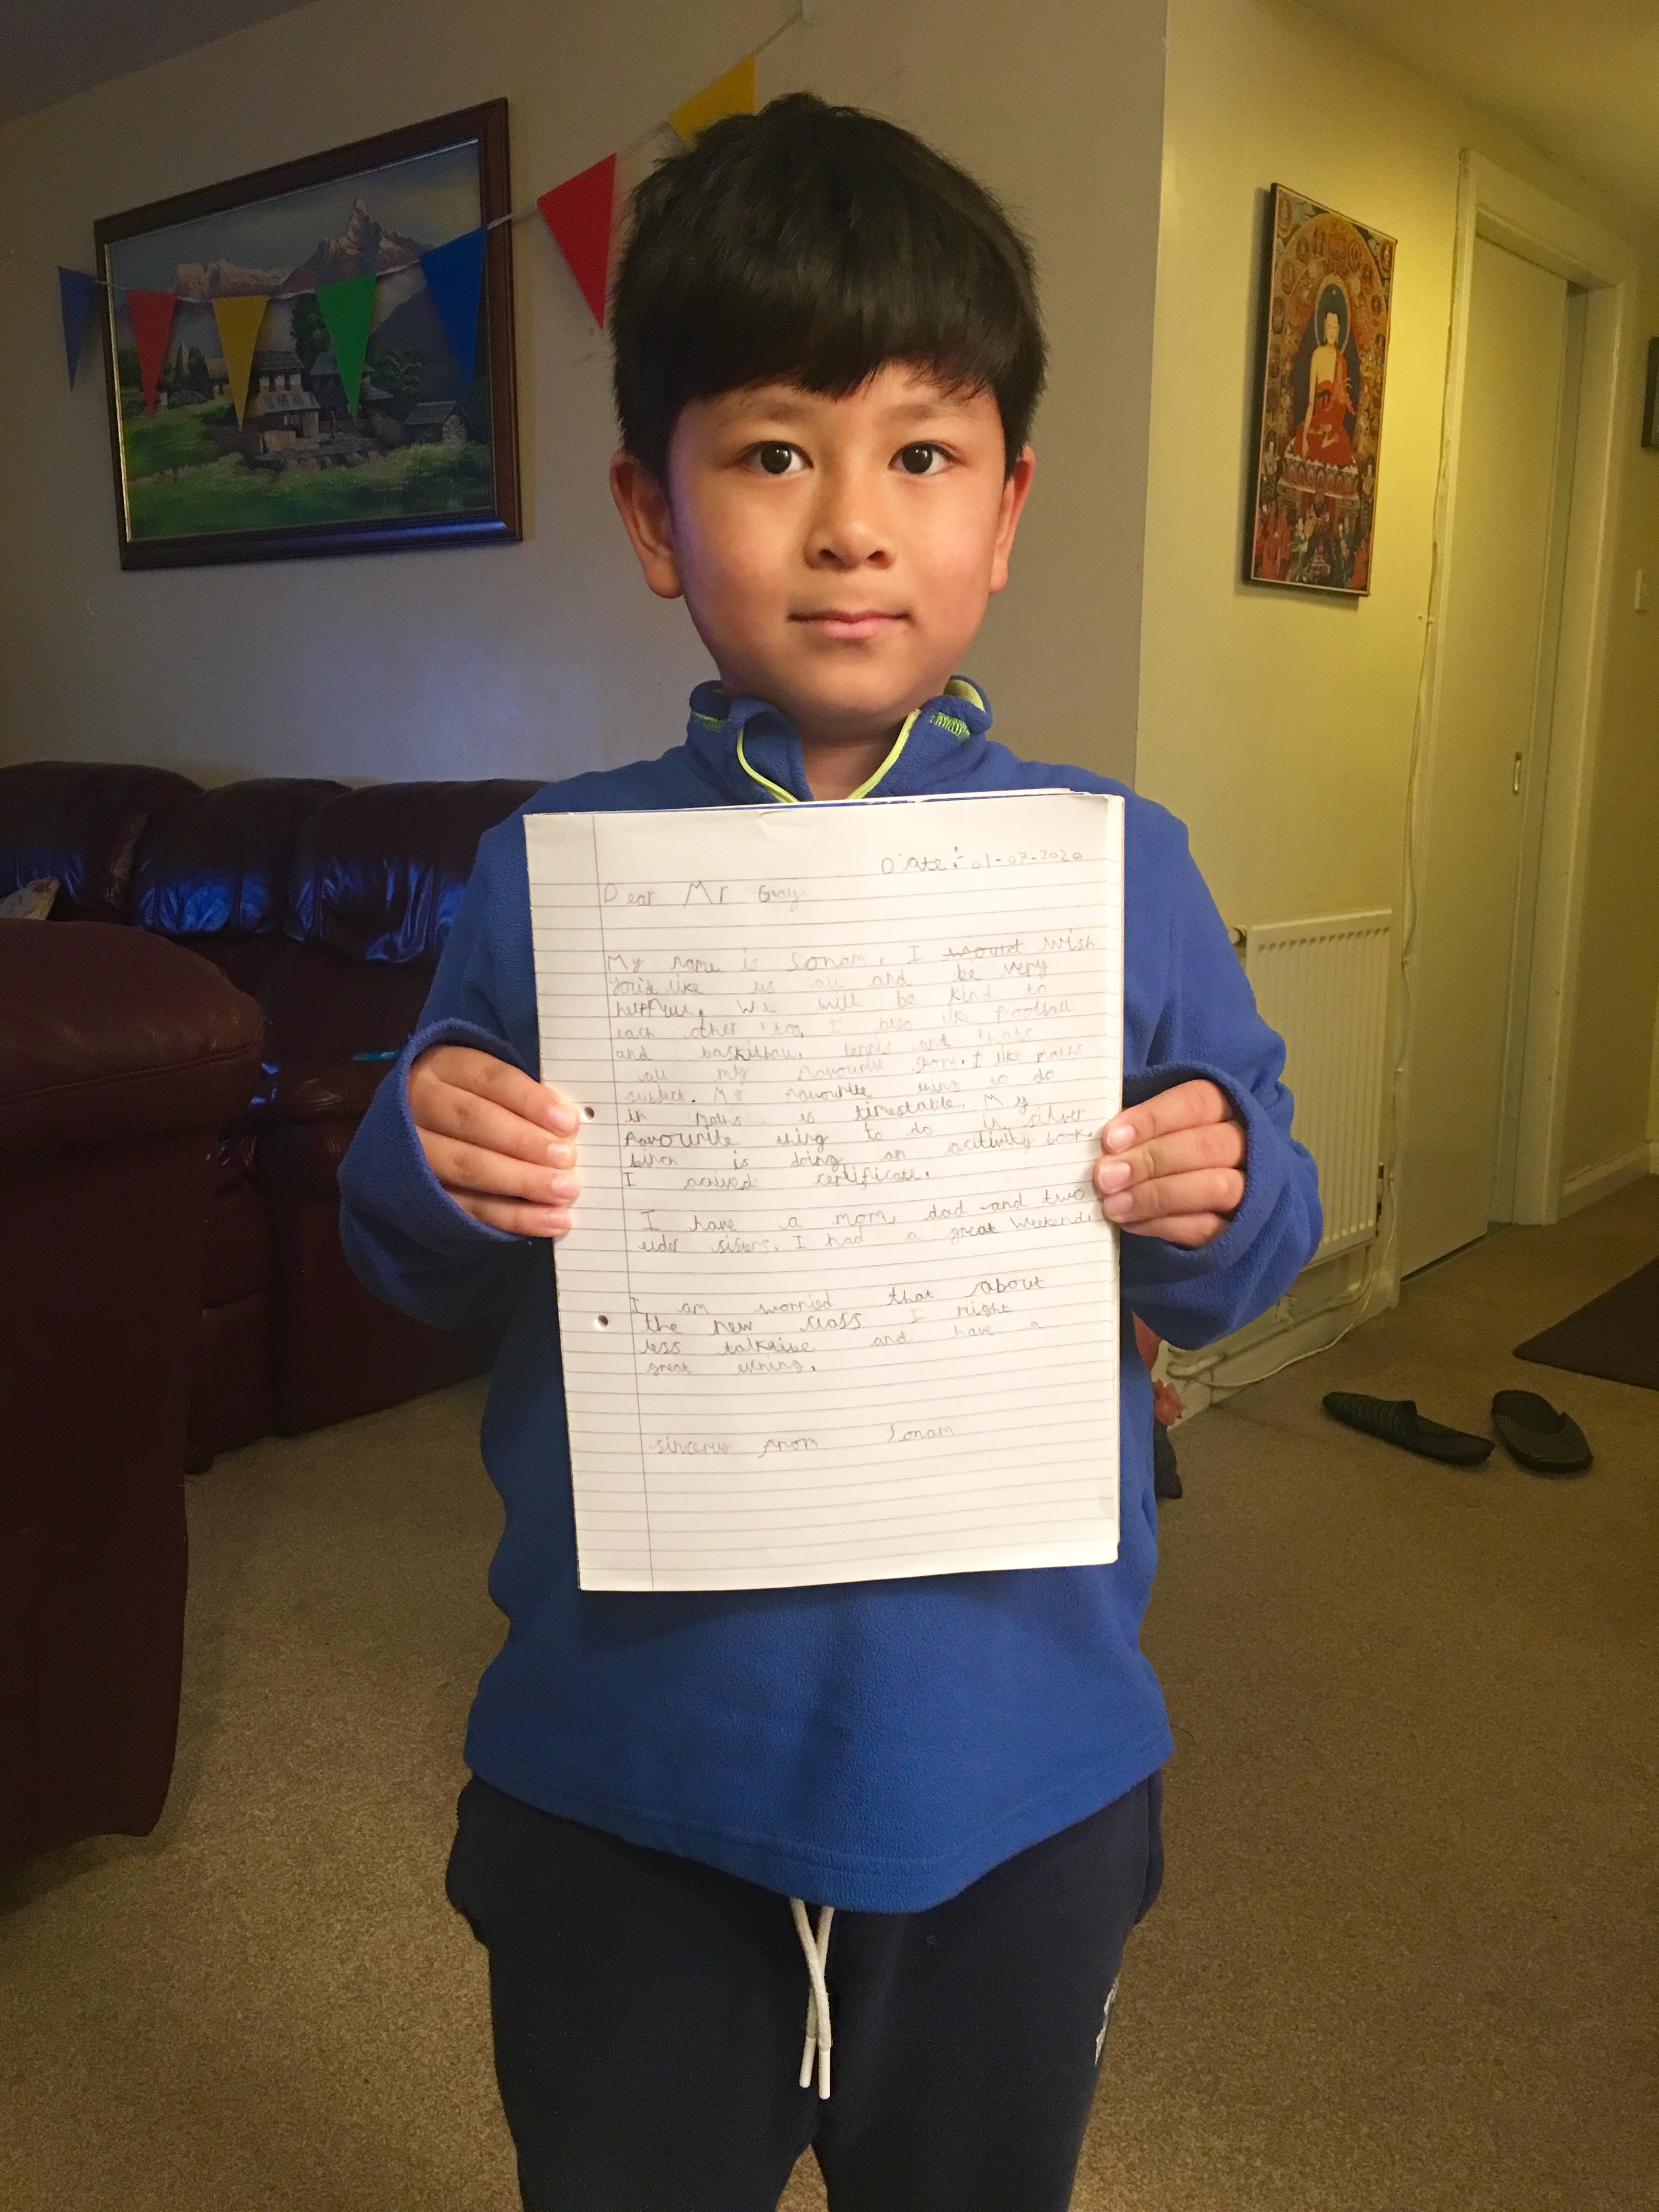 Date: 01-07-2020
Dear Mr Gray
My name is Sonam. I would wish
you'd like us all and be very
helpful. We will be kind to
each other too. I also like football
and baskitball, tennis and thats
all my favourite sport. I like maths
subject. My favourite thing to do
in maths is timestable. My
favourite thing to do in silver
birch is doing an acitivity book.
I certificate.
I have a mom, dad and two
elder sisters. I had a great weekend.
I am worried that about
the new class I might
less talkative and have a
great
from Sonam